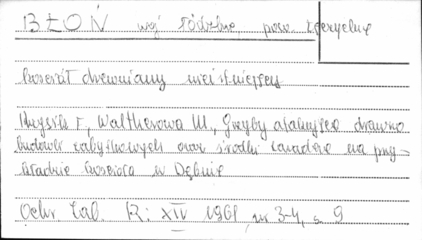 BŁOŃ woj. łódzkie, pow. Łęczyca
Kościół drewniany nieistniejący
Krysik F., Waltherowa M., Grzyby atakujące drewno
budowli zabytkowych oraz środki zaradcze na przy-
kładzie kościoła w Dębnie
Ochr. Zab. R: XIV 1961, nr 3-4, s. 9